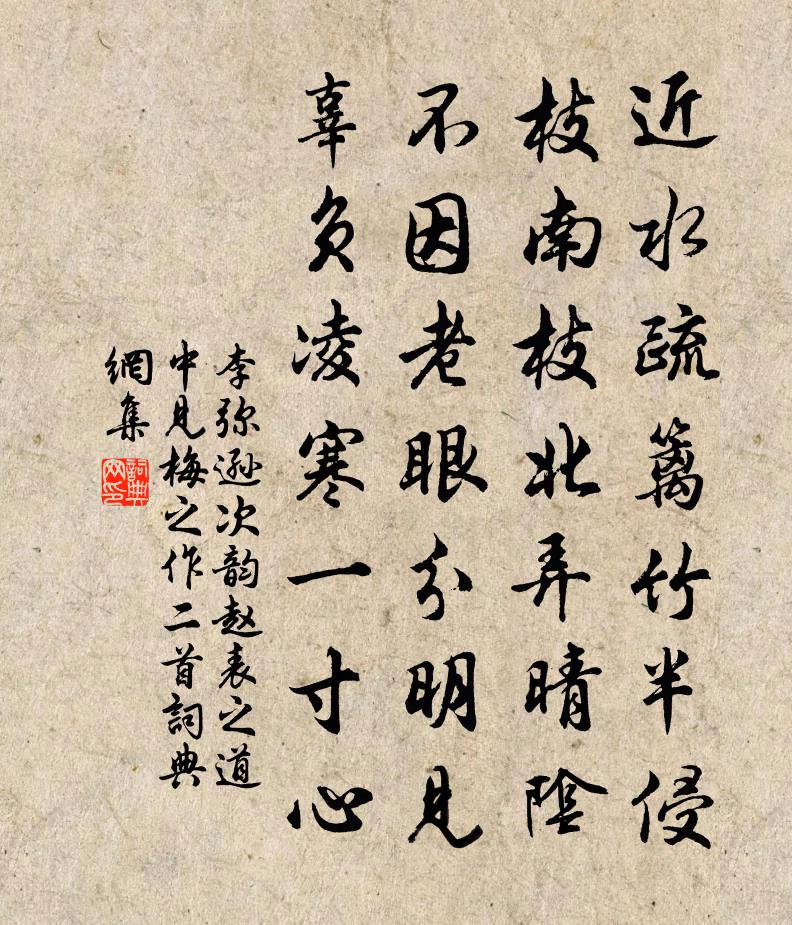 近水疏篱竹半侵
枝南枝北弄晴陰
不因老眼分明見
辜負凌寒一寸心
李弥遜次韵赵表之道
中見梅之作二首詞典
網集
詞典
网印